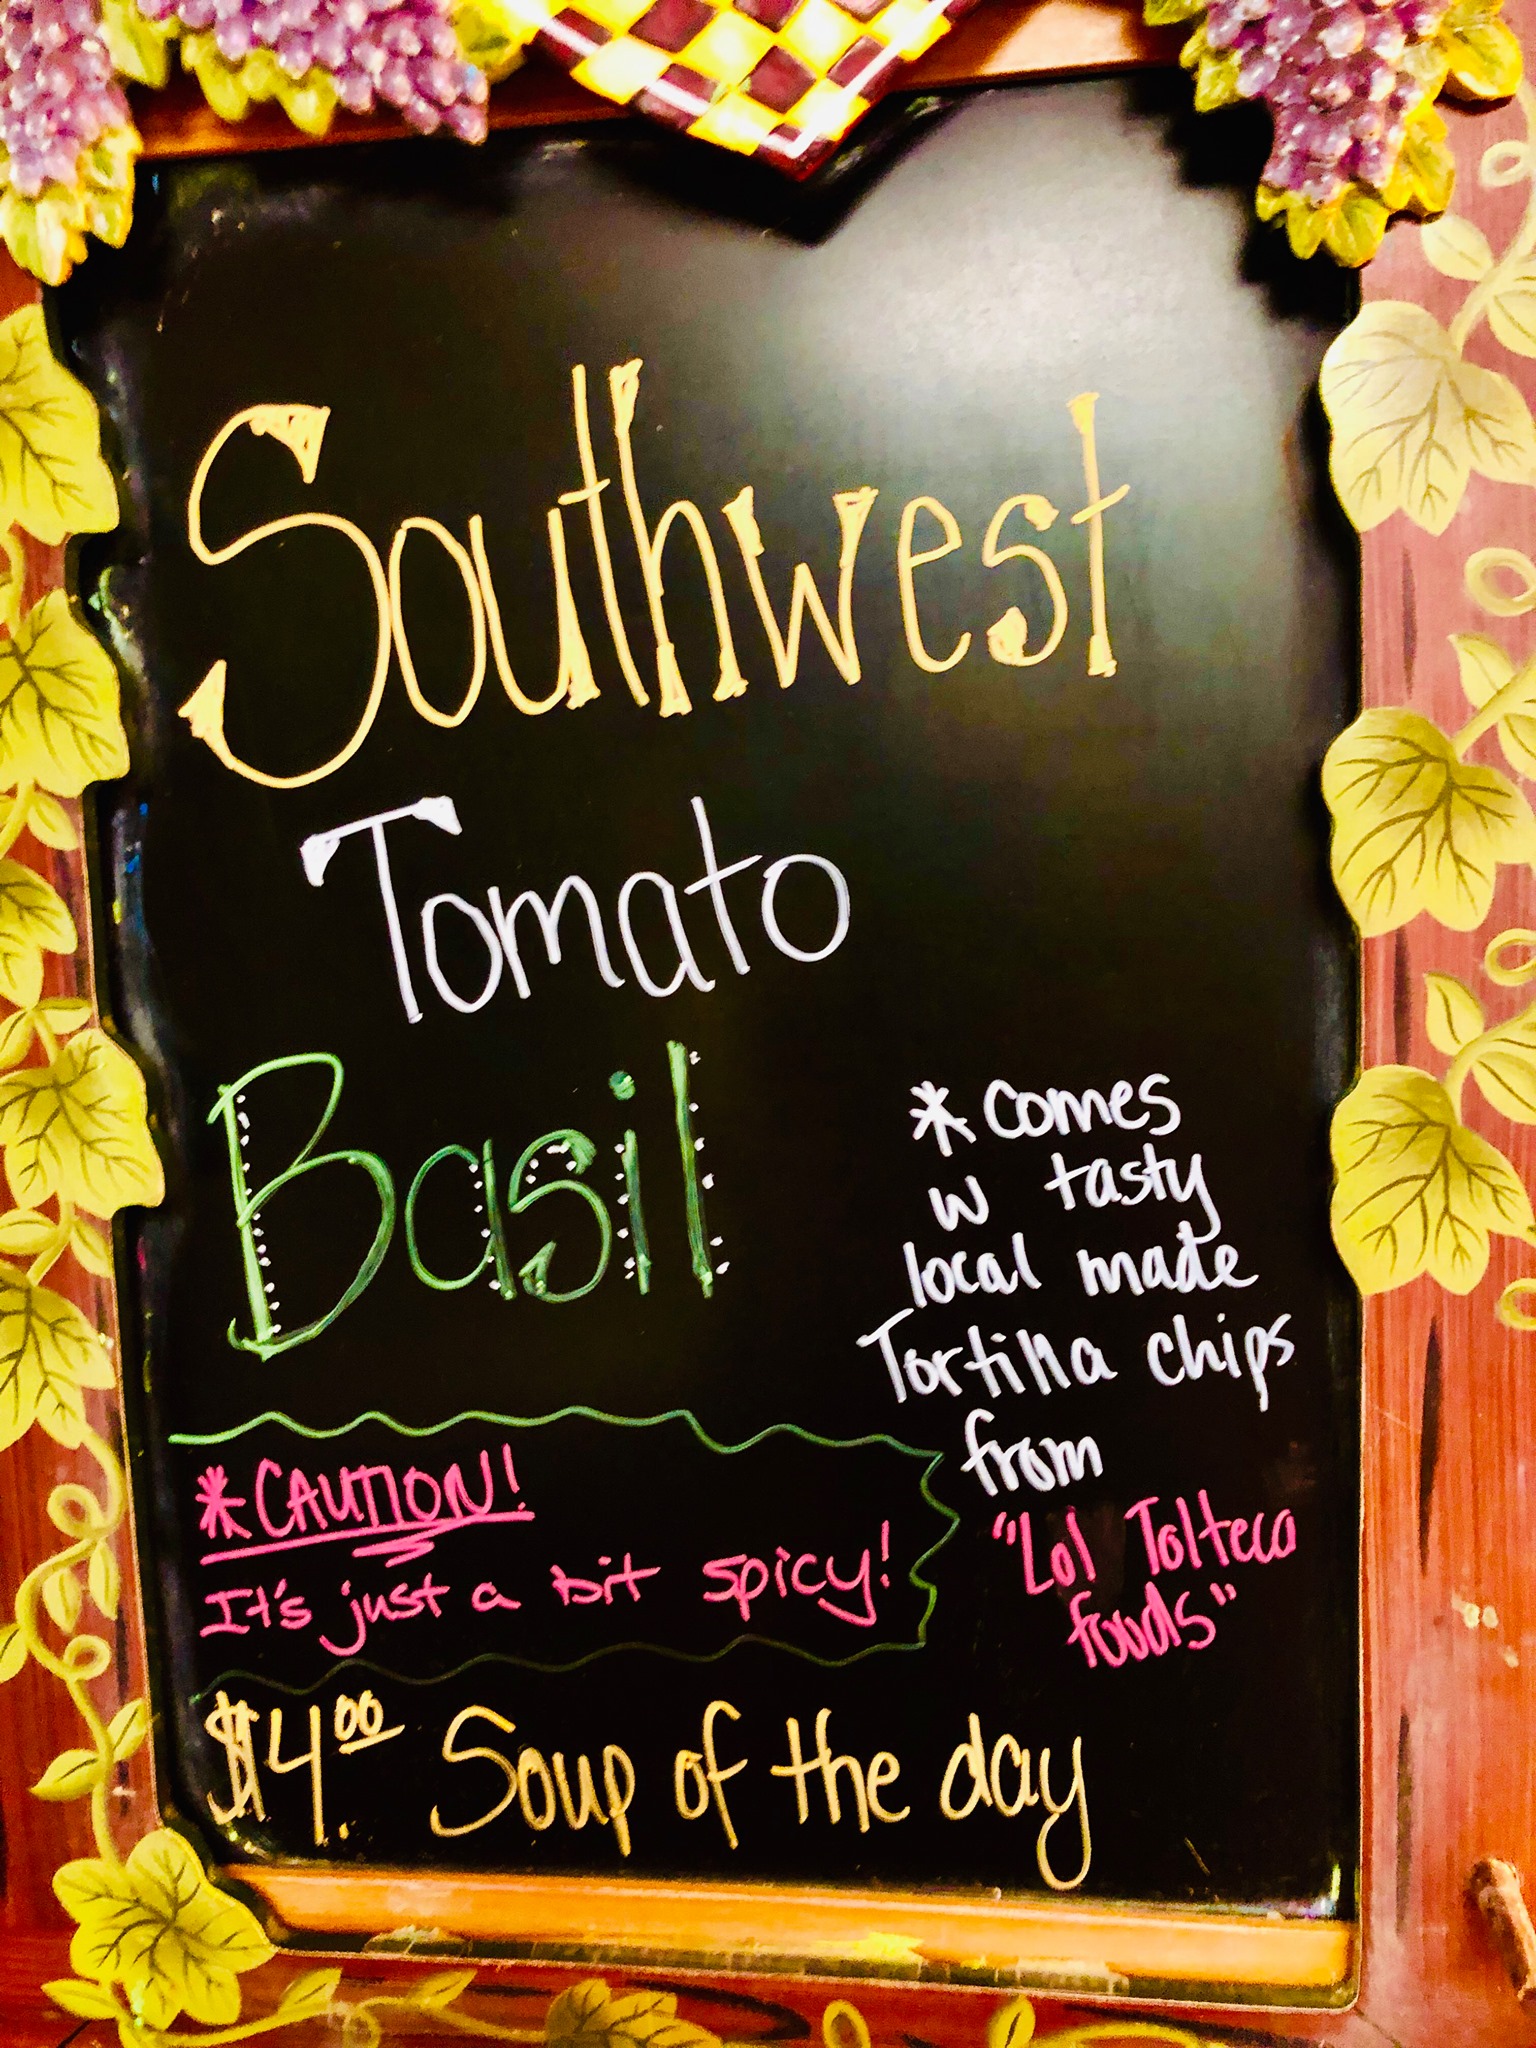 Southwest
Tomato
Basil
*comes
w tasty
local made
Tortilla chips
from
"Lol Tolteca
foods"
*CAUTION!
It's just a bit spicy!
$4.00 Soup of the day